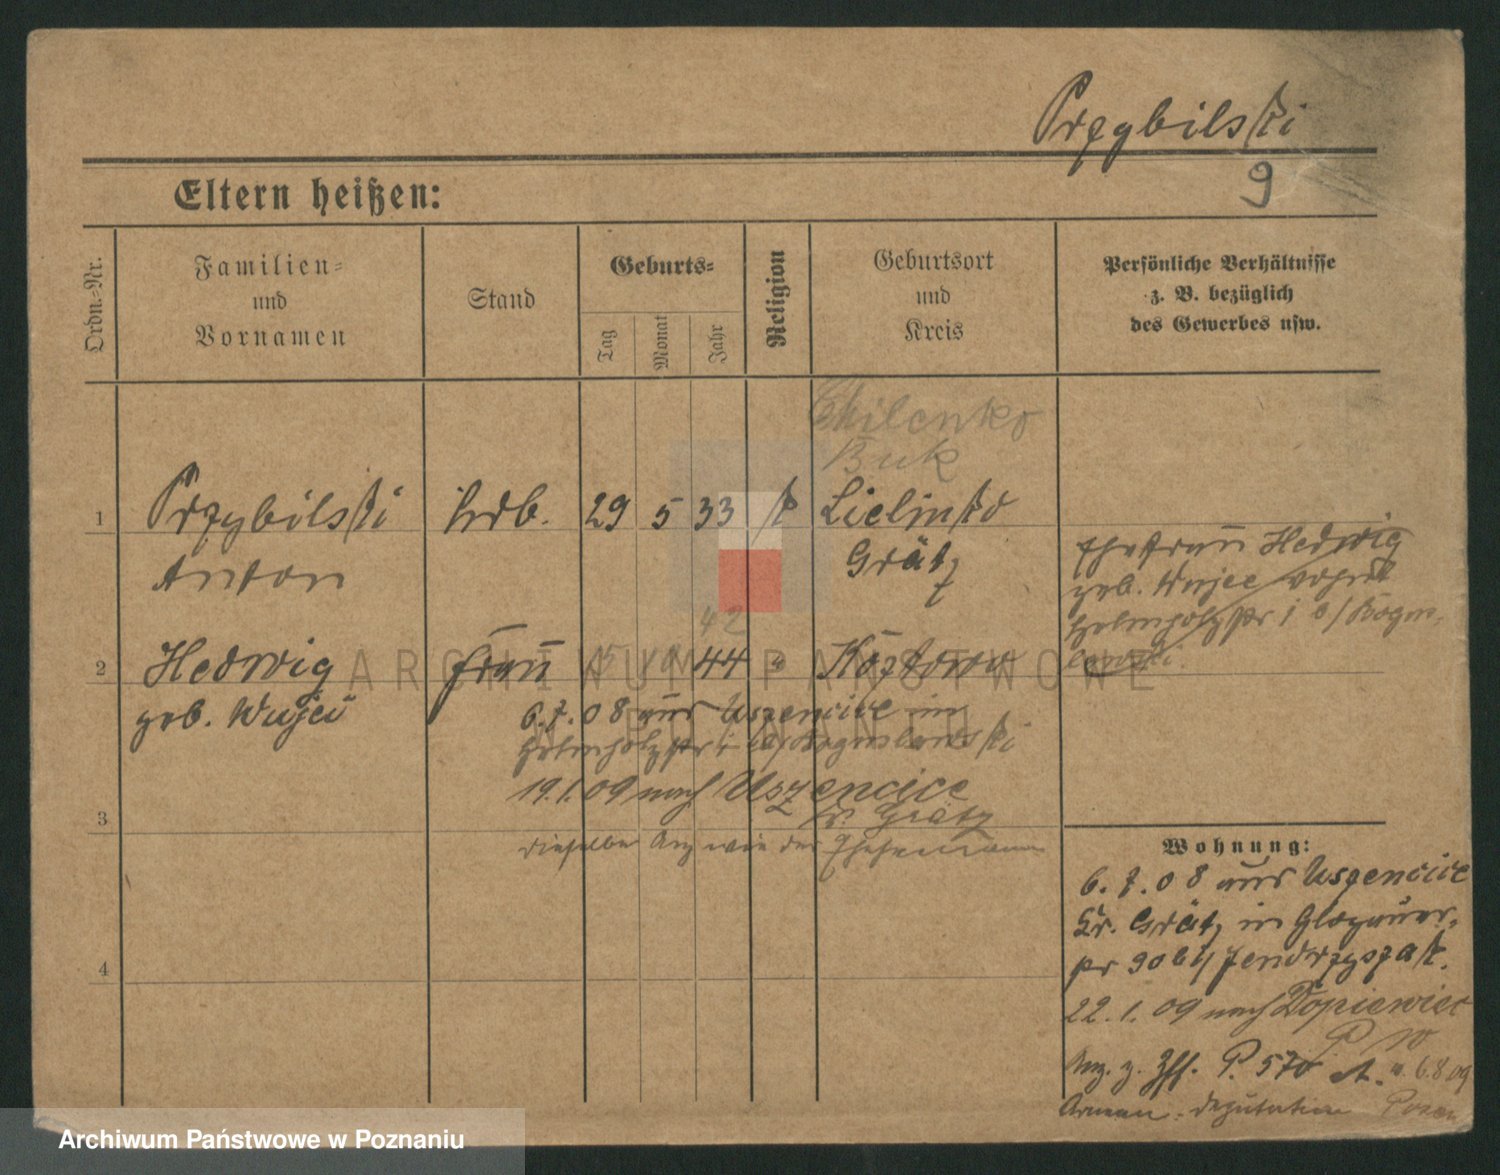 Przybilski
9
Eltern heißen:
Ordn.-Nr.
Familien-
und
Vornamen
Stand
Geburts-
Tag
Monat
Jahr
Religion
Geburtsort
und
Kreis
Persönliche Verhältnisse
z. B. bezüglich
des Gewerbes usw.
Buk
1
Przybilski
Arb.
29
5
33
k
Anton
Grätz
Ehefrau Hedwig
geb. Wujec
42
2
Hedwig
Frau
44
"
geb. Wujec
6.7.08 aus Uszencice in
19.1.09 nach Uszencice
Kr. Grätz
3
dieselbe Anz wie der Ehemann
Wohnung:
6.7.08 aus Uszencice
Kr. Grätz in Glogauer-
str 90 b/ Jendrzyszak.
4
22.1.09 nach Dopiewiec
P W
Anz. z. P. 570 A. v. 6.8.09
Armen-Deputation Posen
ARCHIWUM PAŃSTWOWE
W POZNANIU
Archiwum Państwowe w Poznaniu